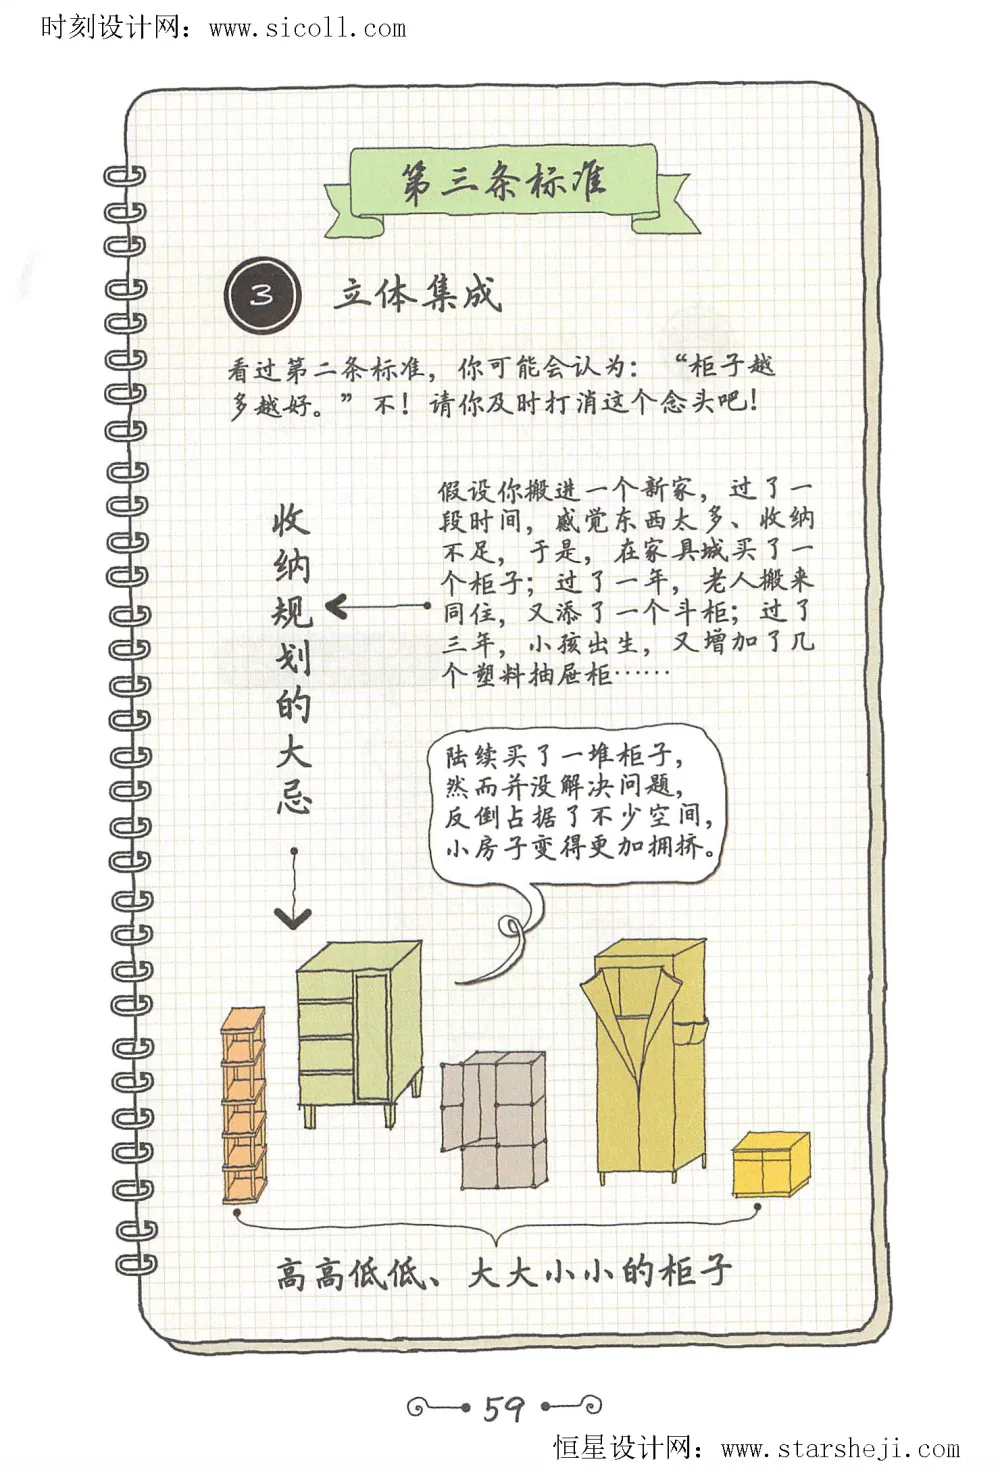 时刻设计网：www.sicoll.com
第三条标准
3
立体集成
看过第二条标准，你可能会认为：“柜子越
多越好。”不！请你及时打消这个念头吧！
收纳规划的大忌
假设你搬进一个新家，过了一
段时间，感觉东西太多、收纳
不足，于是，在家具城买了一
个柜子；过了一年，老人搬来
同住，又添了一个斗柜；过了
三年，小孩出生，又增加了几
个塑料抽屉柜……
陆续买了一堆柜子，
然而并没解决问题，
反倒占据了不少空间，
小房子变得更加拥挤。
高高低低、大大小小的柜子
59
恒星设计网：www.starsheji.com